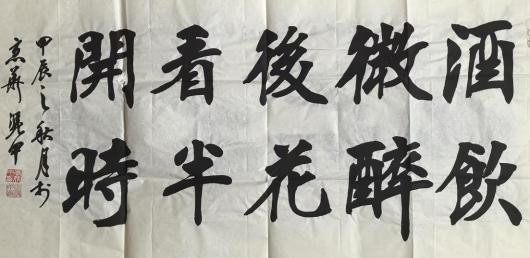 酒飲
微醉
後花
看半
開時
甲辰之秋月於
京華